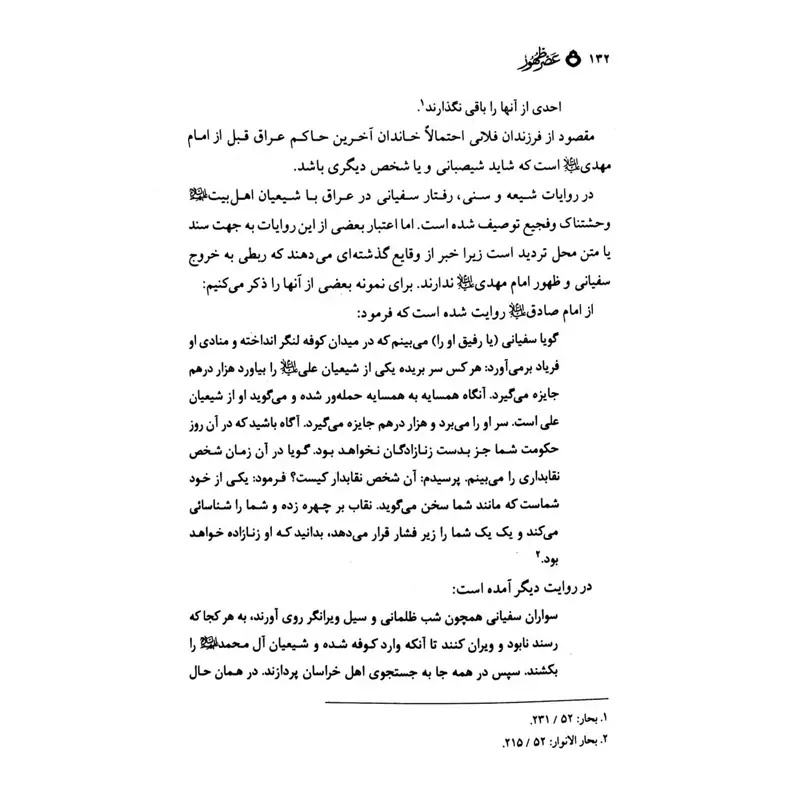 ۱۳۲ عصر ظهور
احدی از آنها را باقی نگذارند۱.
مقصود از فرزندان فلانی احتمالاً خاندان آخرین حاکم عراق قبل از امام
مهدی علیه‌السلام است که شاید شیصبانی و یا شخص دیگری باشد.
در روایات شیعه و سنی، رفتار سفیانی در عراق با شیعیان اهل‌بیت علیهم‌السلام
وحشتناک و فجیع توصیف شده است. اما اعتبار بعضی از این روایات به جهت سند
یا متن محل تردید است زیرا خبر از وقایع گذشته‌ای می‌دهند که ربطی به خروج
سفیانی و ظهور امام مهدی علیه‌السلام ندارند. برای نمونه بعضی از آنها را ذکر می‌کنیم:
از امام صادق علیه‌السلام روایت شده است که فرمود:
گویا سفیانی (یا رفیق او را) می‌بینم که در میدان کوفه لنگر انداخته و منادی او
فریاد برمی‌آورد: هر کس سر بریده یکی از شیعیان علی علیه‌السلام را بیاورد هزار درهم
جایزه می‌گیرد. آنگاه همسایه به همسایه حمله‌ور شده و می‌گوید او از شیعیان
علی است. سر او را می‌برد و هزار درهم جایزه می‌گیرد. آگاه باشید که در آن روز
حکومت شما جز بدست زنازادگان نخواهد بود. گویا در آن زمان شخص
نقابداری را می‌بینم. پرسیدم: آن شخص نقابدار کیست؟ فرمود: یکی از خود
شماست که مانند شما سخن می‌گوید. نقاب بر چهره زده و شما را شناسائی
می‌کند و یک یک شما را زیر فشار قرار می‌دهد، بدانید که او زنازاده خواهد
بود.۲
در روایت دیگر آمده است:
سواران سفیانی همچون شب ظلمانی و سیل ویرانگر روی آورند، به هر کجا که
رسند نابود و ویران کنند تا آنکه وارد کوفه شده و شیعیان آل محمد علیهم‌السلام را
بکشند. سپس در همه جا به جستجوی اهل خراسان پردازند. در همان حال
۱. بحار: ۵۲ / ۲۳۱.
۲. بحار الانوار: ۵۲ / ۲۱۵.